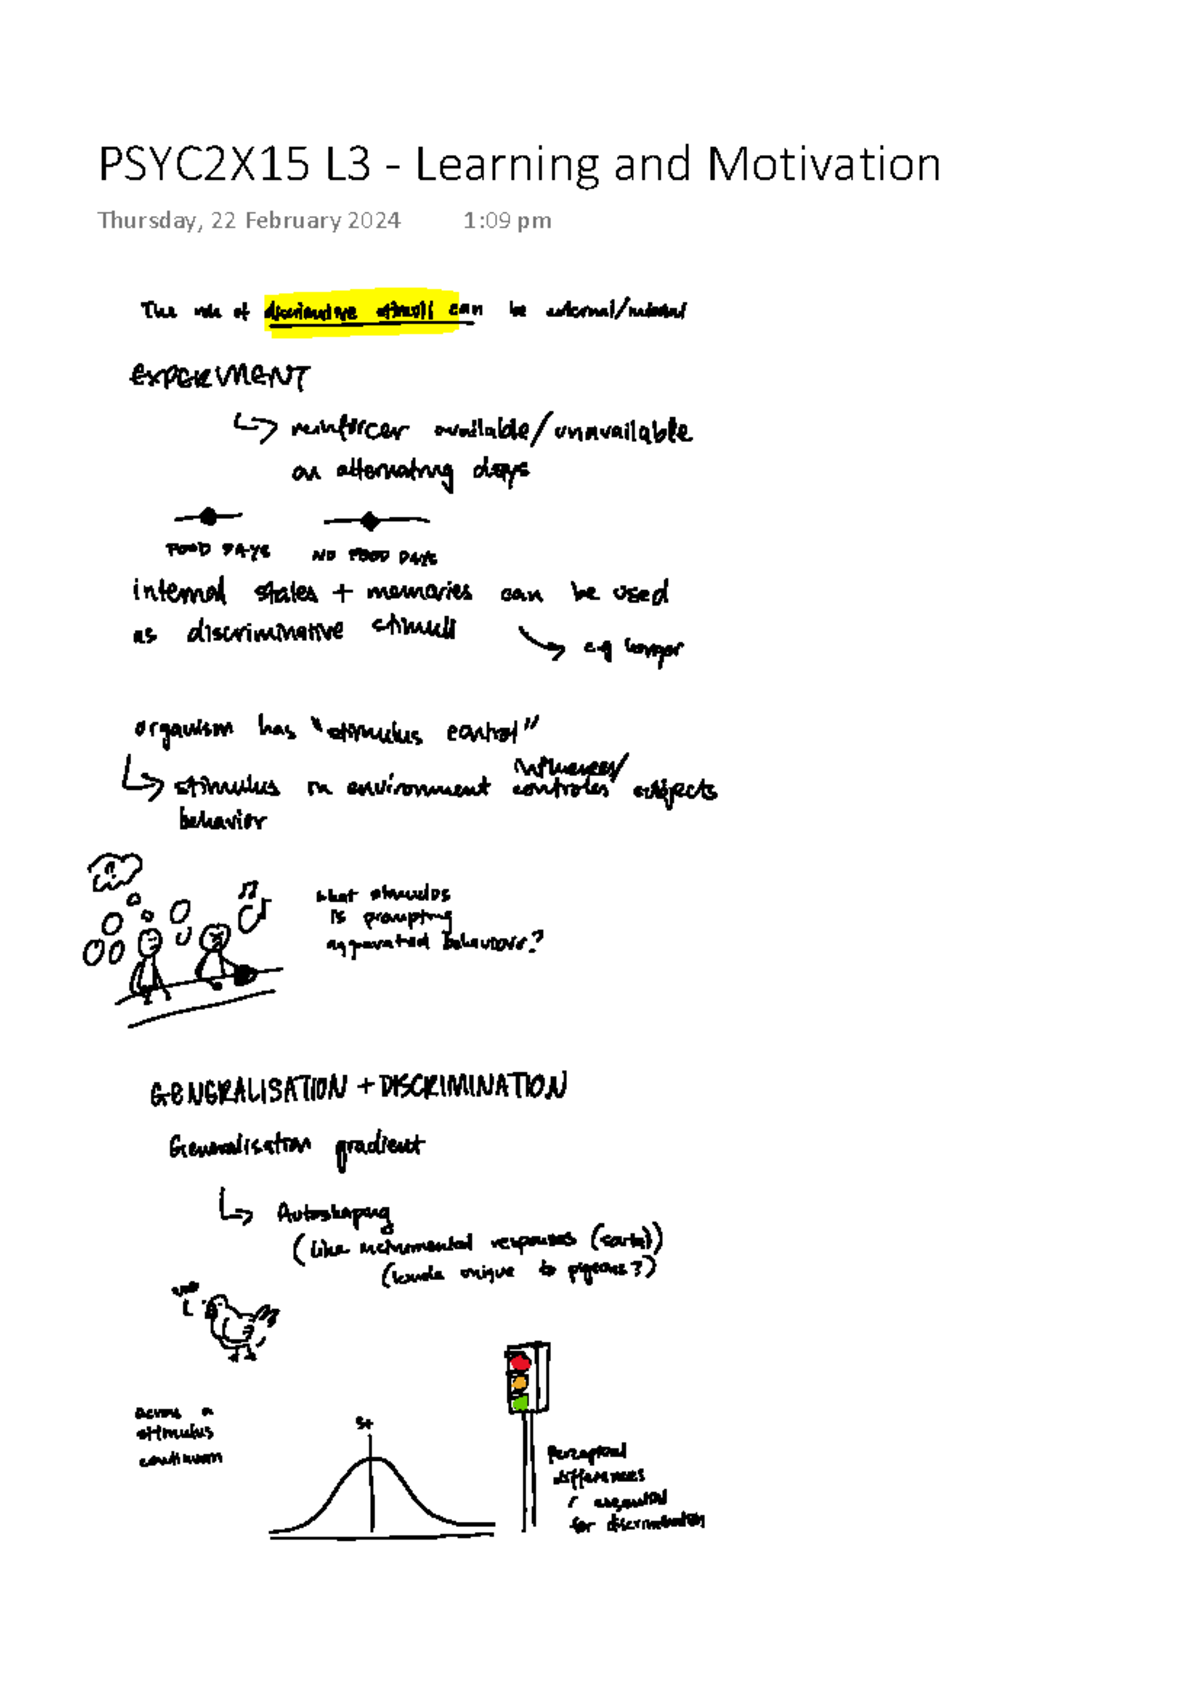 PSYC2X15 L3 - Learning and Motivation
Thursday, 22 February 2024 1:09 pm
The role of discriminative stimuli can be external/internal
EXPERIMENT
↳ reinforcer available/unavailable
on alternating days
FOOD DAYS NO FOOD DAYS
internal states + memories can be used
as discriminative stimuli → eg hunger
organism has "stimulus control"
influences/
↳ stimulus in environment controls subjects
behavior
what stimulus
is prompting
aggravated behaviour?
GENERALISATION + DISCRIMINATION
Generalisation gradient
↳ Autoshaping
(like incremental responses
unique to pigeons?)
across a
stimulus
continuum
S+
Perceptual
differences
essential
for discrimination